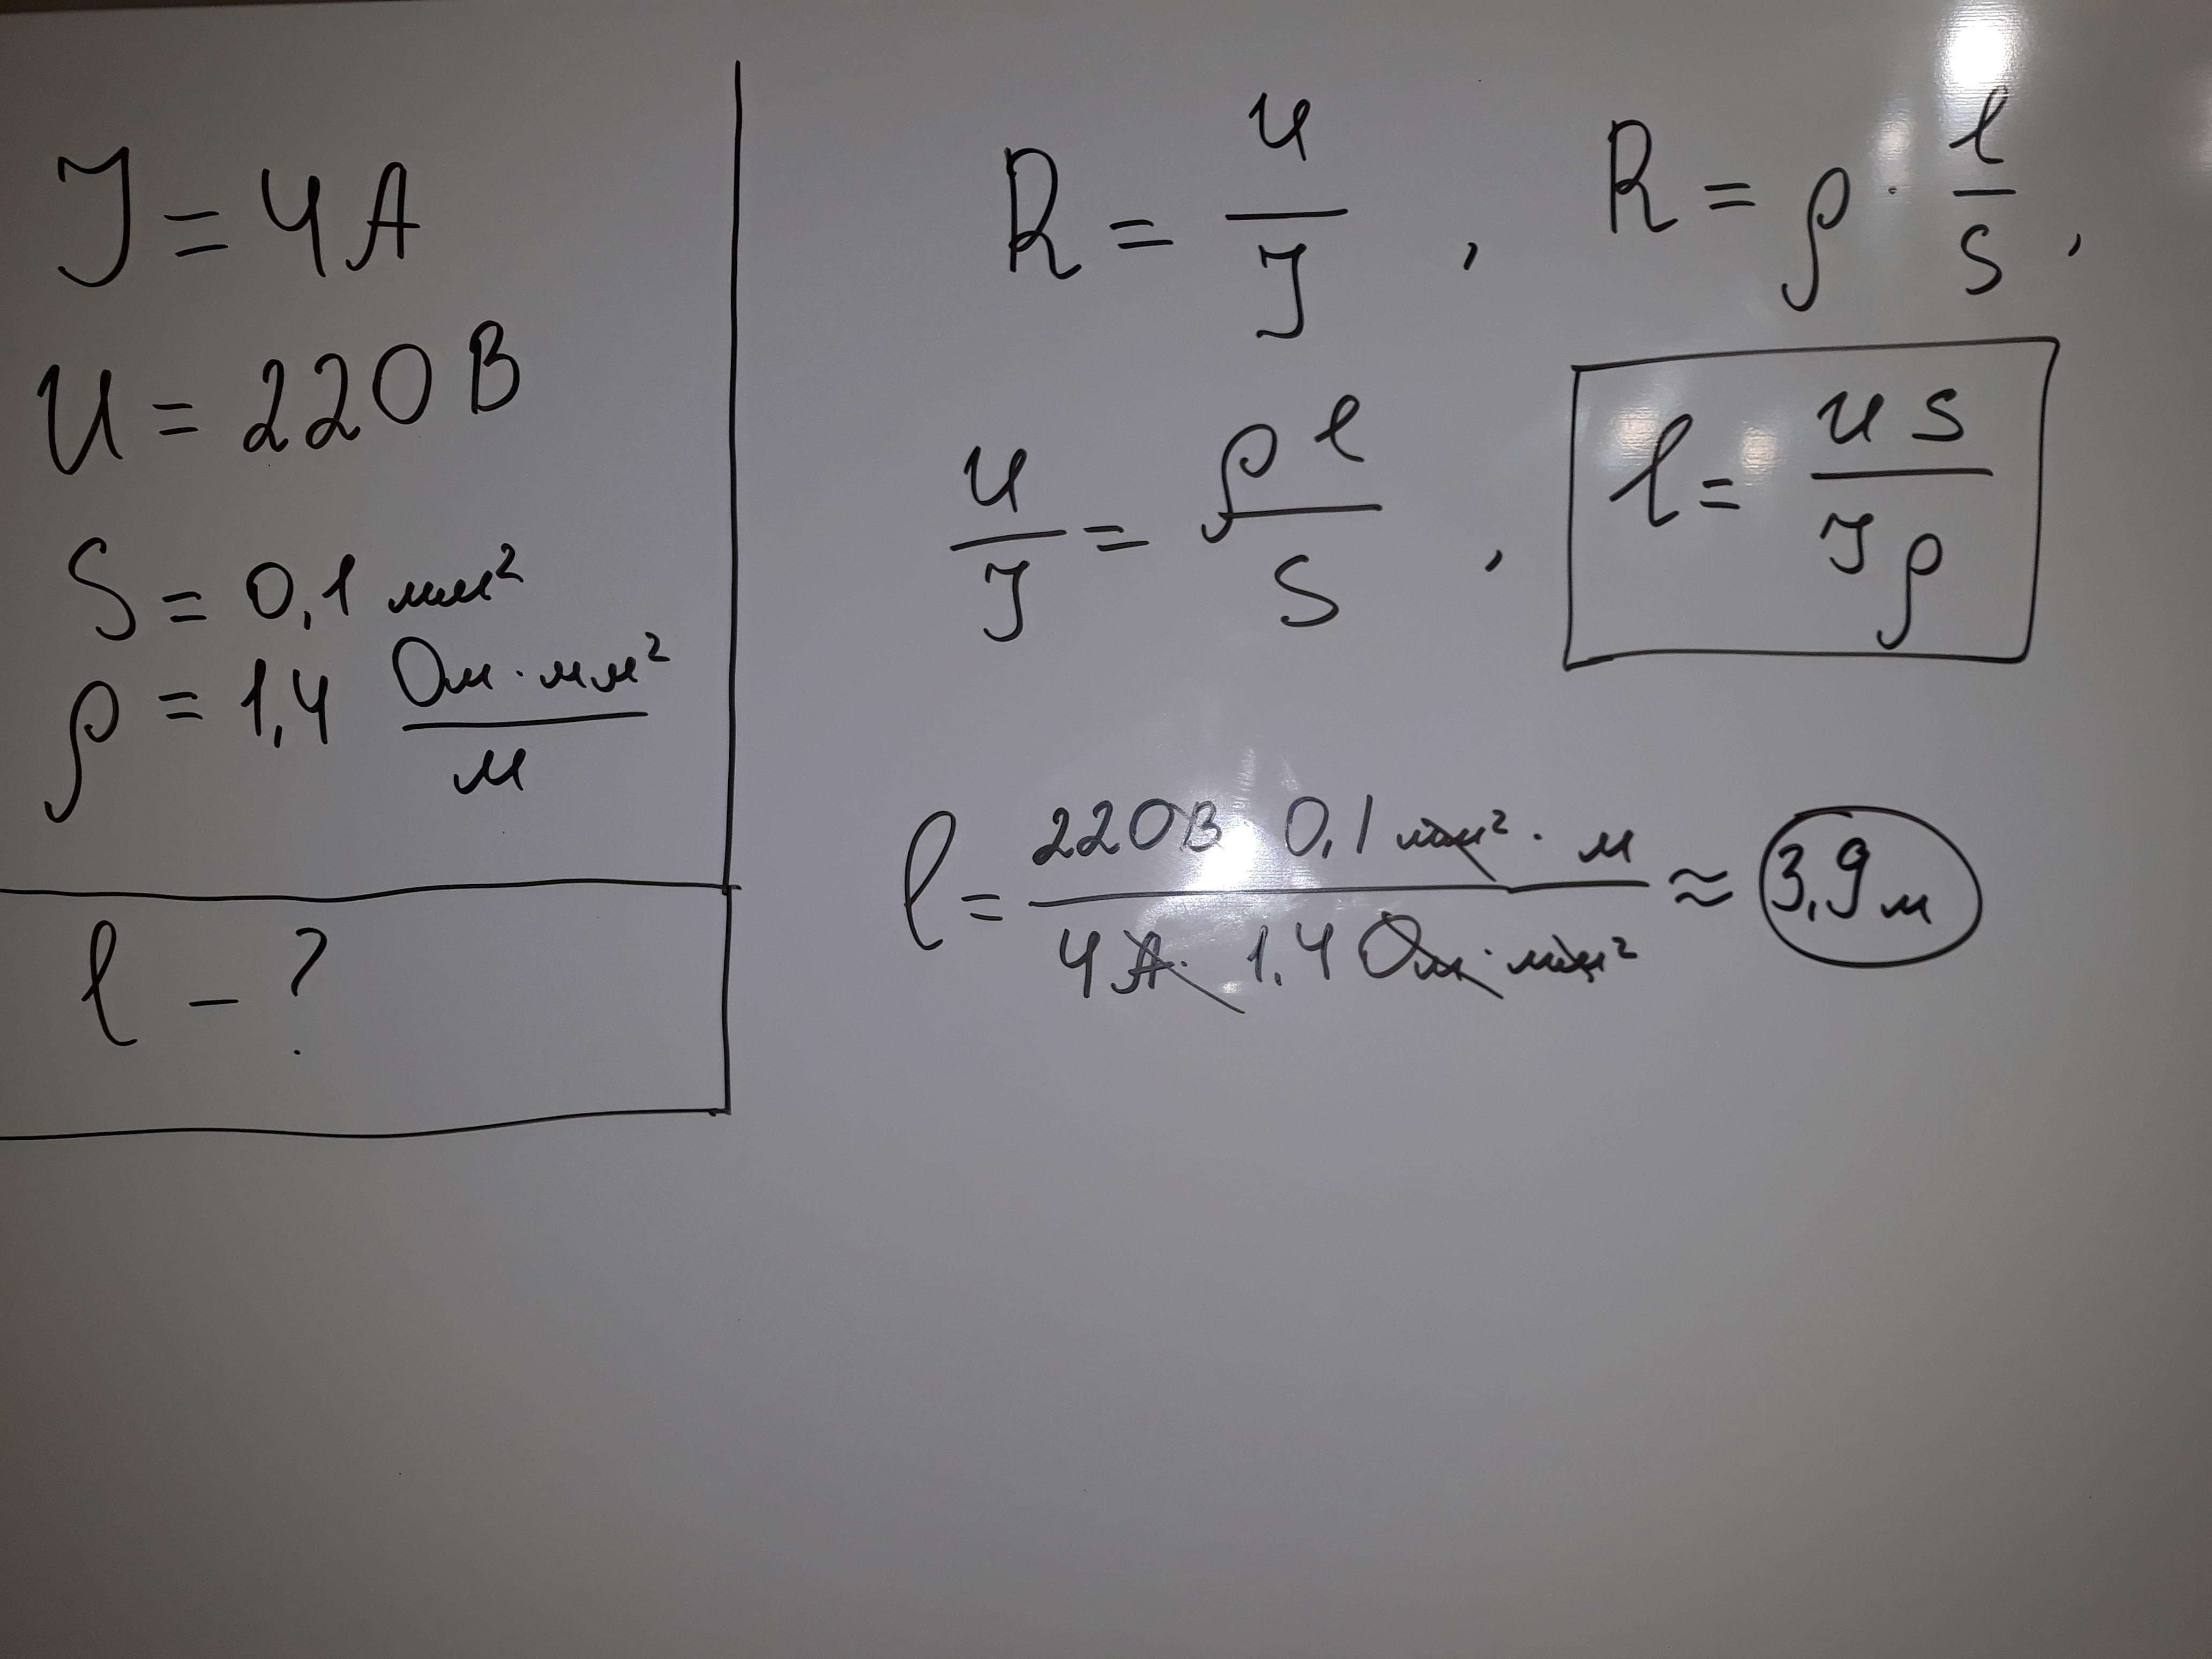 I = 4 А
U = 220 В
S = 0,1 мм²
ρ = 1,4 Ом·мм² / м
l - ?
R = U / I , R = ρ · l / S ,
U / I = ρ l / S , l = U S / I ρ
l = 220 В · 0,1 мм² · м / 4 А · 1,4 Ом · мм² ≈ 3,9 м